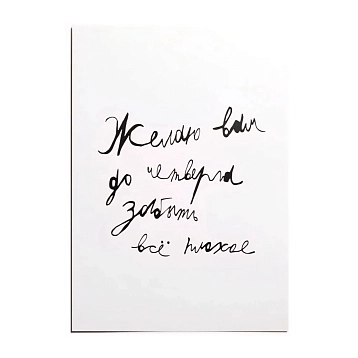 Желаю вам
до четверга
забыть
всё плохое